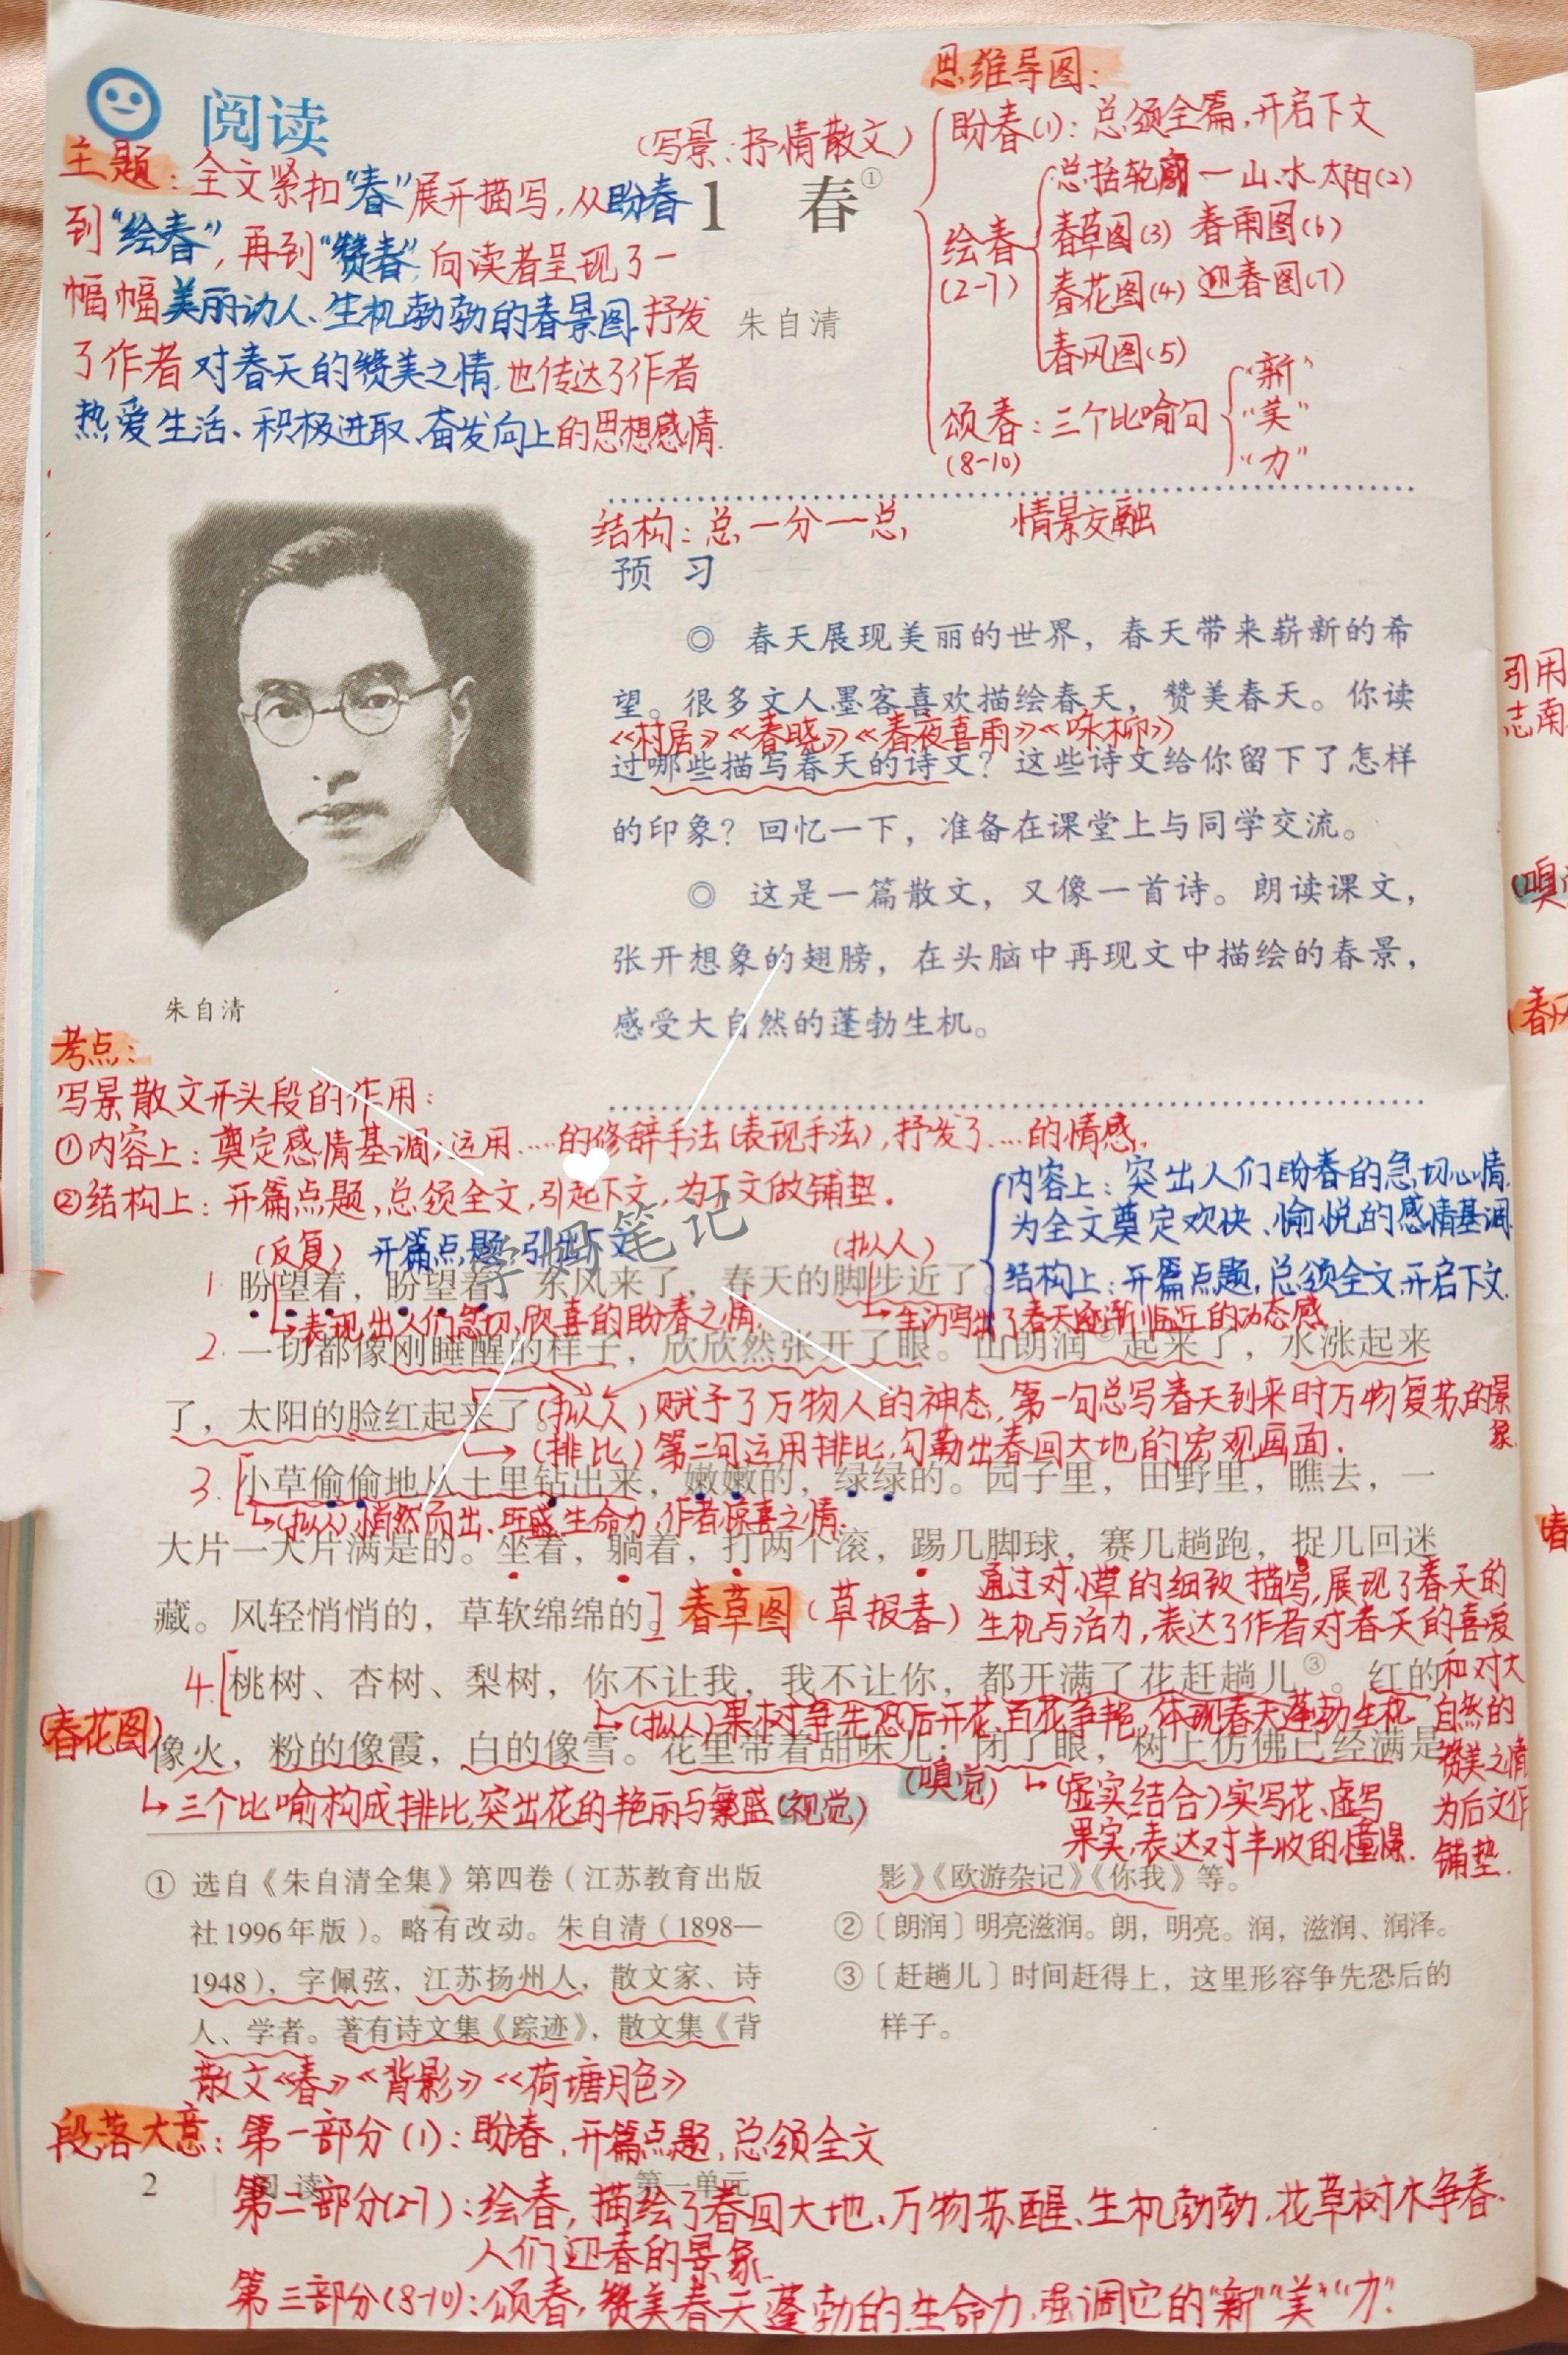 阅读
主题：全文紧扣“春”展开描写，从盼春
到“绘春”，再到“赞春”，向读者呈现了一
幅幅美丽动人、生机勃勃的春景图，抒发
了作者对春天的赞美之情，也传达了作者
热爱生活、积极进取、奋发向上的思想感情.
（写景：抒情散文）
1 春①
朱自清
思维导图：
盼春（1）：总领全篇，开启下文
绘春
（2-7）
总括轮廓一山、水、太阳（2）
春草图（3） 春雨图（6）
春花图（4） 迎春图（7）
春风图（5）
颂春：三个比喻句
（8-10）
“新”
“美”
“力”
结构：总一分一总， 情景交融
预 习
◎ 春天展现美丽的世界，春天带来崭新的希
望。很多文人墨客喜欢描绘春天，赞美春天。你读
《村居》《春晓》《春夜喜雨》《咏柳》
过哪些描写春天的诗文？这些诗文给你留下了怎样
的印象？回忆一下，准备在课堂上与同学交流。
◎ 这是一篇散文，又像一首诗。朗读课文，
张开想象的翅膀，在头脑中再现文中描绘的春景，
感受大自然的蓬勃生机。
朱自清
考点：
写景散文开头段的作用：
①内容上：奠定感情基调，运用……的修辞手法（表现手法），抒发了……的情感.
②结构上：开篇点题，总领全文，引起下文，为下文做铺垫.
内容上：突出人们盼春的急切心情，
为全文奠定欢快、愉悦的感情基调
结构上：开篇点题，总领全文，开启下文.
（反复） 开篇点题，引出下文
（拟人）
学姐笔记
1 盼望着，盼望着，东风来了，春天的脚步近了。
表现出人们急切、欣喜的盼春之情.
生动写出了春天逐渐临近的动态感
2. 一切都像刚睡醒的样子，欣欣然张开了眼。山朗润②起来了，水涨起来
了，太阳的脸红起来了。
（拟人）赋予了万物人的神态，第一句总写春天到来时万物复苏的景象.
（排比）第二句运用排比，勾勒出春回大地的宏观画面.
3. 小草偷偷地从土里钻出来，嫩嫩的，绿绿的。园子里，田野里，瞧去，一
（拟人）悄然而出、旺盛生命力，作者惊喜之情.
大片一大片满是的。坐着，躺着，打两个滚，踢几脚球，赛几趟跑，捉几回迷
藏。风轻悄悄的，草软绵绵的。
春草图（草报春）
通过对小草的细致描写，展现了春天的
生机与活力，表达了作者对春天的喜爱
和对大
自然的
赞美之情
为后文作
铺垫.
4. 桃树、杏树、梨树，你不让我，我不让你，都开满了花赶趟儿③。红的
（拟人）果树争先恐后开花，百花争艳，体现春天蓬勃生机
（春花图）
像火，粉的像霞，白的像雪。花里带着甜味儿；闭了眼，树上仿佛已经满是
三个比喻构成排比，突出花的艳丽与繁盛（视觉）
（嗅觉）
（虚实结合）实写花、虚写
果实，表达对丰收的憧憬.
① 选自《朱自清全集》第四卷（江苏教育出版
社1996年版）。略有改动。朱自清（1898—
1948），字佩弦，江苏扬州人，散文家、诗
人、学者。著有诗文集《踪迹》，散文集《背
影》《欧游杂记》《你我》等。
② 〔朗润〕明亮滋润。朗，明亮。润，滋润、润泽。
③ 〔赶趟儿〕时间赶得上，这里形容争先恐后的
样子。
散文《春》《背影》《荷塘月色》
段落大意：第一部分（1）：盼春，开篇点题，总领全文
2 阅读 第一单元
第二部分（2-7）：绘春，描绘了春回大地、万物苏醒、生机勃勃，花草树木争春.
人们迎春的景象.
第三部分（8-10）：颂春，赞美春天蓬勃的生命力，强调它的“新”“美”“力”.
引用
志南